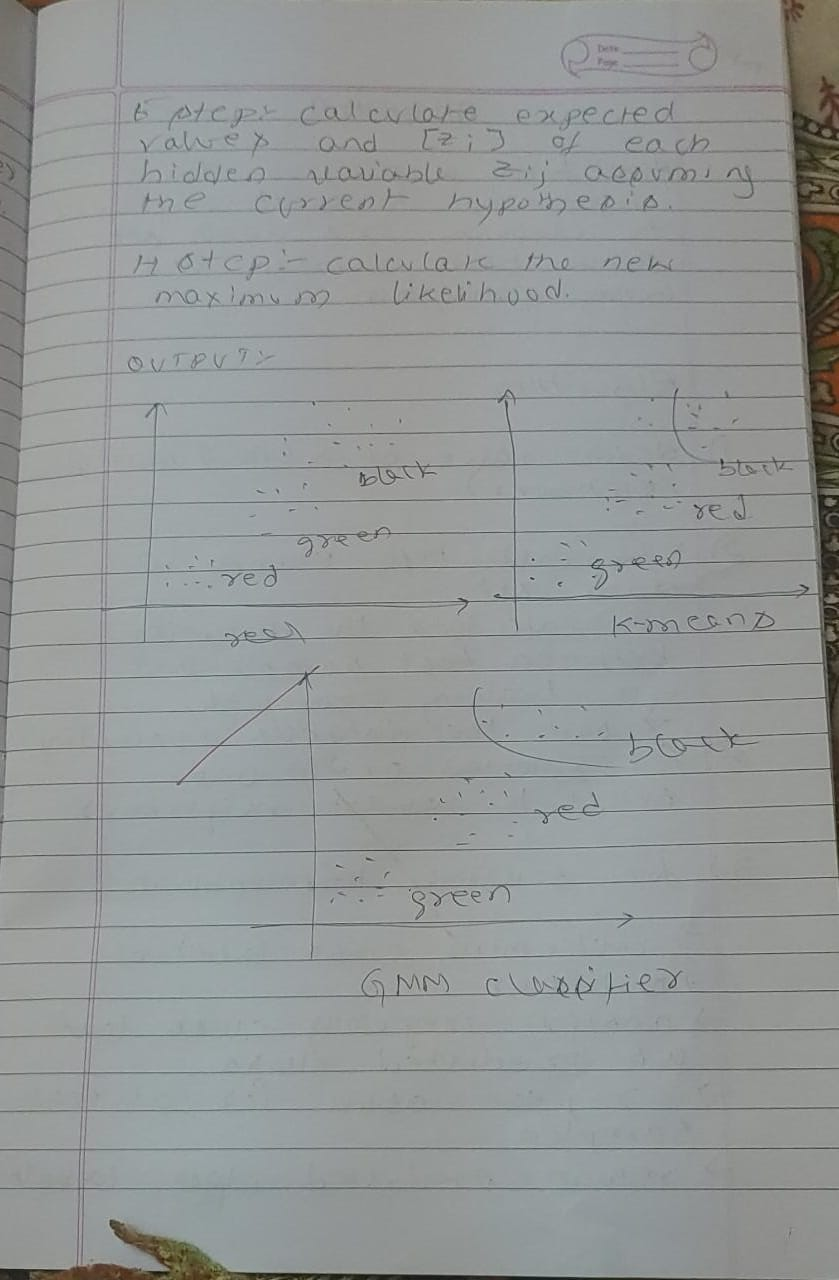 Date
Page
E step:- calculate expected
values and [zi] of each
hidden variable zij assuming
the current hypothesis.
M step:- calculate the new
maximum likelihood.
OUTPUT:-
black
black
red
green
green
red
real
K-means
black
red
green
GMM classifier